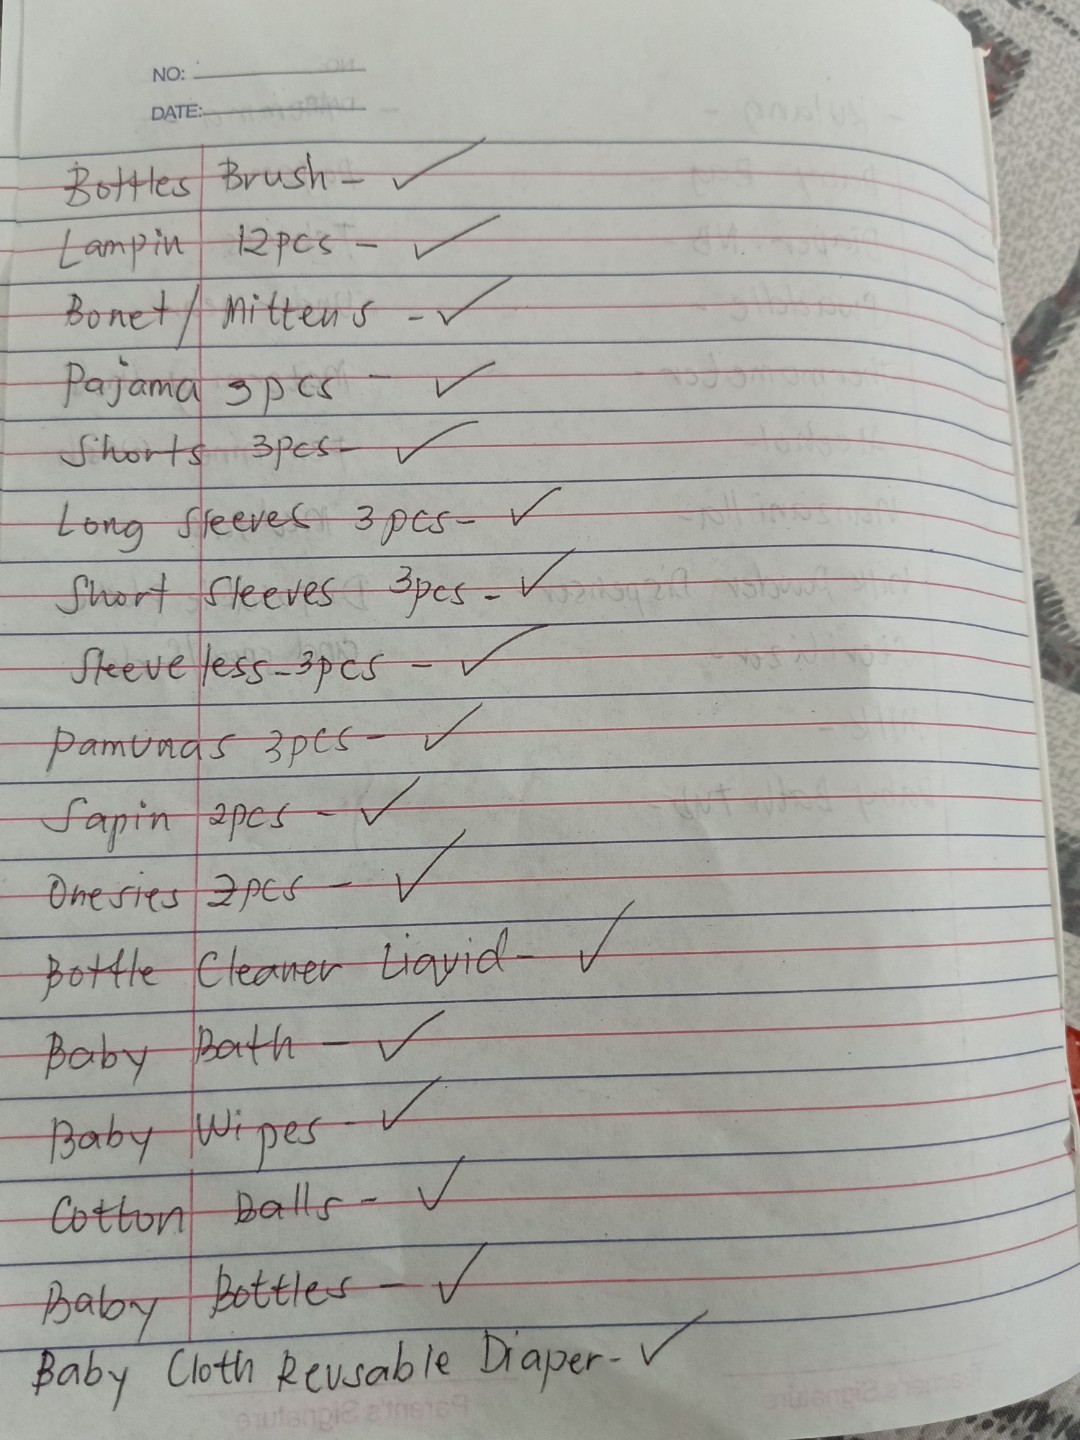 NO:
DATE:
Bottles Brush - ✓
Lampin 12pcs - ✓
Bonet/ Mittens - ✓
Pajama 3pcs - ✓
Shorts 3pcs - ✓
Long Sleeves 3pcs - ✓
Short Sleeves 3pcs - ✓
Sleeveless - 3pcs - ✓
Pamunas 3pcs - ✓
Sapin 2pcs - ✓
Onesies 2pcs - ✓
Bottle Cleaner Liquid - ✓
Baby Bath - ✓
Baby Wipes - ✓
Cotton Balls - ✓
Baby Bottles - ✓
Baby Cloth Reusable Diaper - ✓